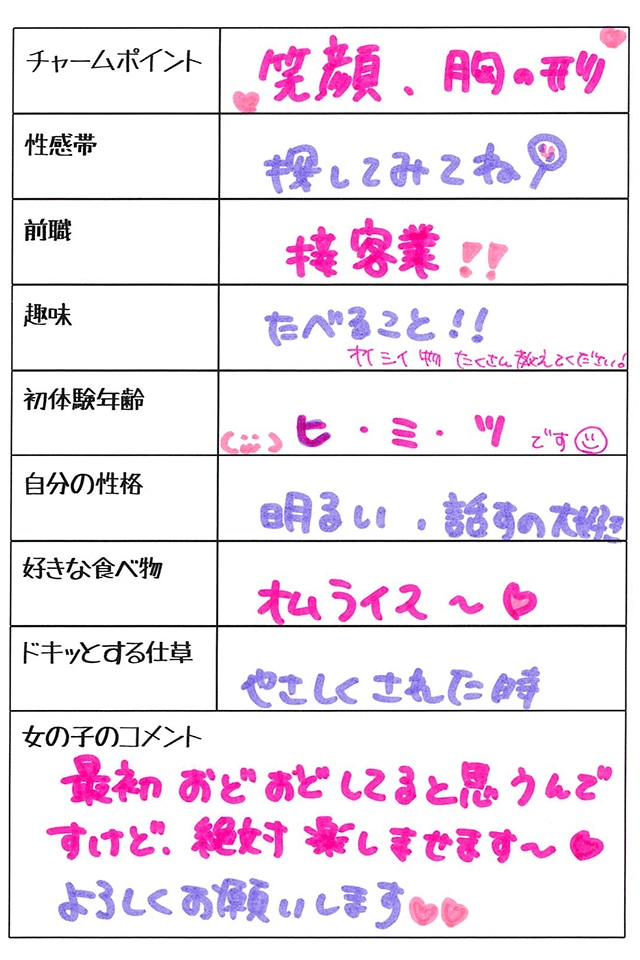 チャームポイント 笑顔、胸の形
性感帯 探してみてね
前職 接客業!!
趣味 たべること!!
オイシイ物 たくさん教えてください!
初体験年齢 ヒ・ミ・ツ です
自分の性格 明るい、話すの大好き
好きな食べ物 オムライス〜
ドキッとする仕草 やさしくされた時
女の子のコメント
最初おどおどしてると思うんで
すけど、絶対楽しませます〜
よろしくお願いします